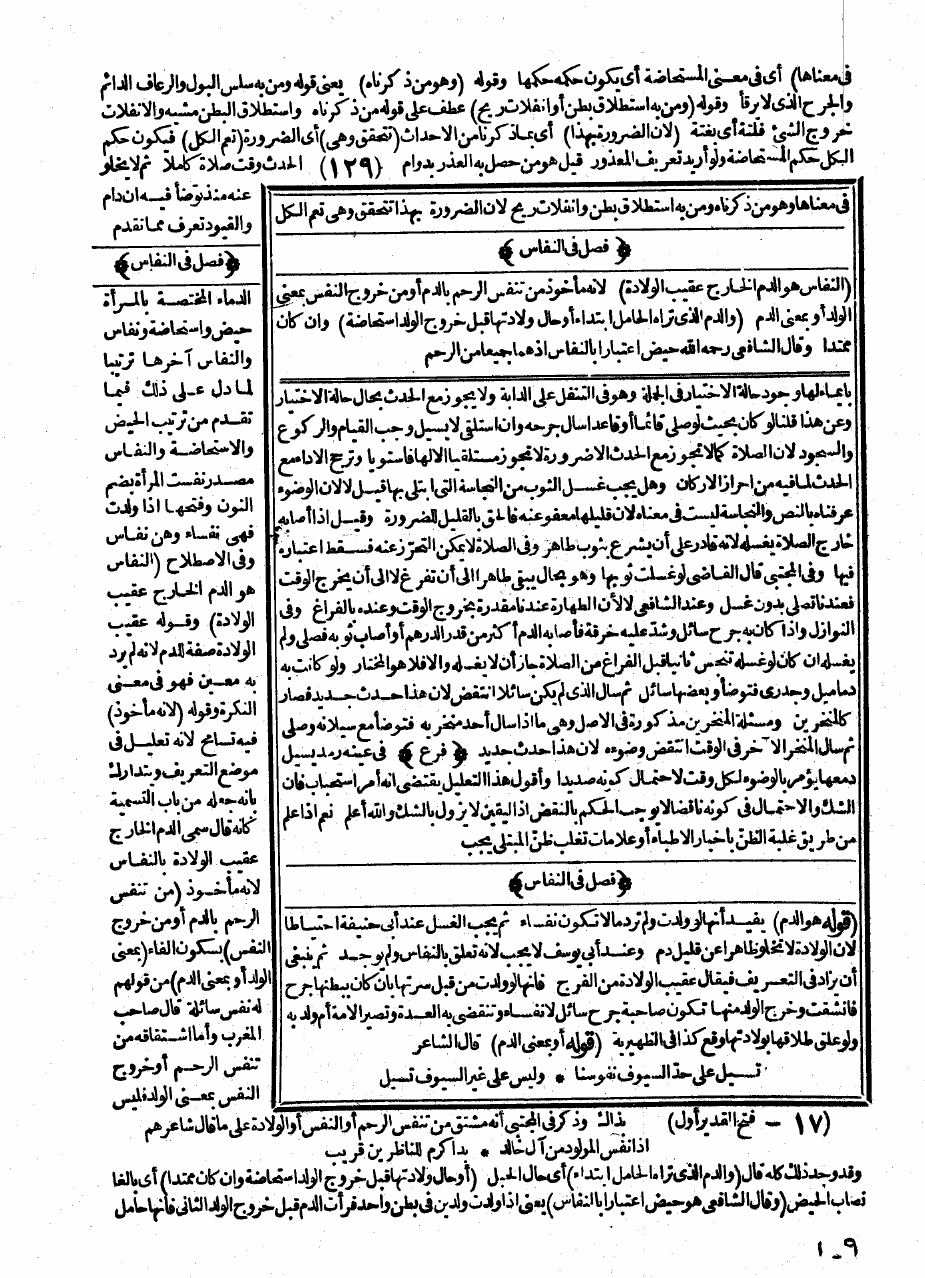 فى معناها) أى فى معنى المستحاضة أى يكون حكمه حكمها وقوله (وهو من ذكرناه) يعنى قوله ومن به سلس البول والرعاف الدائم
والجرح الذى لا يرقأ وقوله (ومن به استطلاق بطن أو انفلات ريح) عطف على قوله من ذكرناه واستطلاق البطن مشيه والانفلات
خروج الشئ فلتة أى بغتة (لان الضرورة بهذا) أى بما ذكرنا من الاحداث (تتحقق وهى) أى الضرورة (تعم الكل) فيكون حكم
الكل حكم المستحاضة ولو أريد تعريف المعذور قيل هو من حصل به العذر بدوام (١٢٩) الحدث وقت صلاة كاملا ثم لا يخلو
عنه منذ توضأ فيه ان دام
والقيود تعرف مما تقدم
﴿فصل فى النفاس﴾
الدماء المختصة بالمرأة
حيض واستحاضة ونفاس
والنفاس آخرها ترتيبا
لما دل على ذلك فيما
تقدم من ترتيب الحيض
والاستحاضة والنفاس
مصدر نفست المرأة بضم
النون وفتحها اذا ولدت
فهى نفساء وهن نفاس
وفى الاصطلاح (النفاس
هو الدم الخارج عقيب
الولادة) وقوله عقيب
الولادة صفة للدم لانه لم يرد
به معين فهو فى معنى
النكرة وقوله (لانه مأخوذ)
فيه تسامح لانه تعليل فى
موضع التعريف ويتدارك
بانه جعله من باب التسمية
كأنه قال سمى الدم الخارج
عقيب الولادة بالنفاس
لانه مأخوذ (من تنفس
الرحم بالدم أو من خروج
النفس) بسكون الفاء (بمعنى
الولد أو بمعنى الدم) من قولهم
له نفس سائلة قال صاحب
المغرب وأما اشتقاقه من
تنفس الرحم أو خروج
النفس بمعنى الولد فليس
فى معناها وهو من ذكرناه ومن به استطلاق بطن وانفلات ريح لان الضرورة بهذا تتحقق وهى تعم الكل
﴿فصل فى النفاس﴾
(النفاس هو الدم الخارج عقيب الولادة) لانه مأخوذ من تنفس الرحم بالدم أو من خروج النفس بمعنى
الولد أو بمعنى الدم (والدم الذى تراه الحامل ابتداء أو حال ولادتها قبل خروج الولد استحاضة) وان كان
ممتدا وقال الشافعى رحمه الله حيض اعتبارا بالنفاس اذ هما جميعا من الرحم
بايماء لها وجود حالة الاختيار فى الجملة وهو فى التنفل على الدابة ولا يجوز مع الحدث بحال حالة الاختيار
وعن هذا قلنا لو كان بحيث لو صلى قائما أو قاعدا سال جرحه وان استلقى لا يسيل وجب القيام والركوع
والسجود لان الصلاة كما لا تجوز مع الحدث الا ضرورة لا تجوز مستلقيا الا لها فاستويا وترجح الاداء مع
الحدث لما فيه من احراز الاركان وهل يجب غسل الثوب من النجاسة التى ابتلى بها قيل لا لان الوضوء
عرفناه بالنص والنجاسة ليست فى معناه لان قليلها معفو عنه فالحق بالقليل للضرورة وقيل اذا أصابه
خارج الصلاة يغسله لانه قادر على أن يشرع بثوب طاهر وفى الصلاة لا يمكن التحرز عنه فسقط اعتباره
فيها وفى المجتبى قال القاضى لو غسلت ثوبها وهو بحال يبقى طاهرا الى أن تفرغ لا الى أن يخرج الوقت
فعندنا تصلى بدون غسل وعند الشافعى لا لأن الطهارة عندنا مقدرة بخروج الوقت وعنده بالفراغ وفى
النوازل واذا كان به جرح سائل وشد عليه خرقة فأصابه الدم أكثر من قدر الدرهم أو أصاب ثوبه فصلى ولم
يغسله ان كان لو غسله تنجس ثانيا قبل الفراغ من الصلاة جاز أن لا يغسله والا فلا هو المختار ولو كانت به
دماميل وجدرى فتوضأ وبعضها سائل ثم سال الذى لم يكن سائلا انتقض لان هذا حدث جديد فصار
كالمنخرين ومسئلة المنخرين مذكورة فى الاصل وهى ما اذا سال أحد منخريه فتوضأ مع سيلانه وصلى
ثم سال المنخر الآخر فى الوقت انتقض وضوءه لان هذا حدث جديد ﴿فرع﴾ فى عينه رمد يسيل
دمعها يؤمر بالوضوء لكل وقت لاحتمال كونه صديدا وأقول هذا التعليل يقتضى انه أمر استحباب فان
الشك والاحتمال فى كونه ناقضا لا يوجب الحكم بالنقض اذ اليقين لا يزول بالشك والله أعلم نعم اذا علم
من طريق غلبة الظن باخبار الاطباء أو علامات تغلب ظن المبتلى يجب
﴿فصل فى النفاس﴾
(قوله هو الدم) يفيد أنها لو ولدت ولم تر دما لا تكون نفساء ثم يجب الغسل عند أبى حنيفة احتياطا
لان الولادة لا تخلو ظاهرا عن قليل دم وعند أبى يوسف لا يجب لانه تعلق بالنفاس ولم يوجد ثم ينبغى
أن يزاد فى التعريف فيقال عقيب الولادة من الفرج فانها لو ولدت من قبل سرتها بان كان ببطنها جرح
فانشقت وخرج الولد منها تكون صاحبة جرح سائل لا نفساء وتنقضى به العدة وتصير الامة أم ولد به
ولو علق طلاقها بولادتها وقع كذا فى الظهيرية (قوله أو بمعنى الدم) قال الشاعر
تسيل على حد السيوف نفوسنا * وليس على غير السيوف تسيل
(١٧ - فتح القدير أول) بذاك وذكر فى المجتبى أنه مشتق من تنفس الرحم أو النفس أو الولادة على ما قال شاعرهم
اذا نفس المولود من آل خالد * بدا كرم للناظرين قريب
وقد وجد ذلك كله قال (والدم الذى تراه الحامل ابتداء) أى حال الحبل (أو حال ولادتها قبل خروج الولد استحاضة وان كان ممتدا) أى بالغا
نصاب الحيض (وقال الشافعى هو حيض اعتبارا بالنفاس) يعنى اذا ولدت ولدين فى بطن واحد فرأت الدم قبل خروج الولد الثانى فانها حامل
١ـ٩